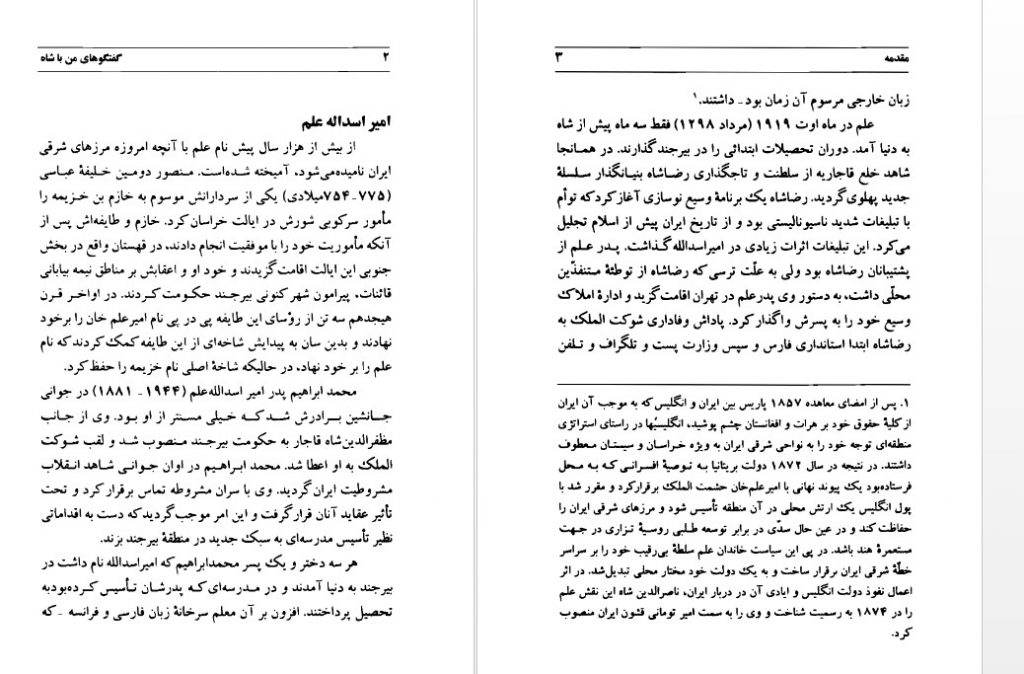 ۲ گفتگوهای من با شاه
امیر اسداله علم
از بیش از هزار سال پیش نام علم با آنچه امروزه مرزهای شرقی
ایران نامیده‌می‌شود، آمیخته شده‌است. منصور دومین خلیفهٔ عباسی
(۷۷۵-۷۵۴میلادی) یکی از سردارانش موسوم به خازم بن خزیمه را
مأمور سرکوبی شورش در ایالت خراسان کرد. خازم و طایفه‌اش پس از
آنکه مأموریت خود را با موفقیت انجام دادند، در قهستان واقع در بخش
جنوبی این ایالت اقامت‌گزیدند و خود او و اعقابش بر مناطق نیمه بیابانی
قائنات، پیرامون شهر کنونی بیرجند حکومت کردند. در اواخر قرن
هیجدهم سه تن از رؤسای این طایفه پی در پی نام امیرعلم خان را برخود
نهادند و بدین سان به پیدایش شاخه‌ای از این طایفه کمک کردند که نام
علم را بر خود نهاد، در حالیکه شاخهٔ اصلی نام خزیمه را حفظ کرد.
محمد ابراهیم پدر امیر اسدالله‌علم (۱۹۴۴- ۱۸۸۱) در جوانی
جانشین برادرش شد که خیلی مسنتر از او بود. وی از جانب
مظفرالدین‌شاه قاجار به حکومت بیرجند منصوب شد و لقب شوکت
الملک به او اعطا شد. محمد ابراهیم در اوان جوانی شاهد انقلاب
مشروطیت ایران گردید. وی با سران مشروطه تماس برقرار کرد و تحت
تأثیر عقاید آنان قرار گرفت و این امر موجب گردید که دست به اقداماتی
نظیر تأسیس مدرسه‌ای به سبک جدید در منطقهٔ بیرجند بزند.
هر سه دختر و یک پسر محمدابراهیم که امیراسدالله نام داشت در
بیرجند به دنیا آمدند و در مدرسه‌ای که پدرشان تأسیس کرده‌بودبه
تحصیل پرداختند. افزون بر آن معلم سرخانهٔ زبان فارسی و فرانسه -که
مقدمه ۳
زبان خارجی مرسوم آن زمان بود- داشتند.۱
علم در ماه اوت ۱۹۱۹ (مرداد ۱۲۹۸) فقط سه ماه پیش از شاه
به دنیا آمد. دوران تحصیلات ابتدائی را در بیرجند گذارند. در همانجا
شاهد خلع قاجاریه از سلطنت و تاجگذاری رضاشاه بنیانگذار سلسلهٔ
جدید پهلوی گردید. رضاشاه یک برنامهٔ وسیع نوسازی آغاز کرد که توأم
با تبلیغات شدید ناسیونالیستی بود و از تاریخ ایران پیش از اسلام تجلیل
می‌کرد. این تبلیغات اثرات زیادی در امیراسدالله گذاشت. پدر علم از
پشتیبانان رضاشاه بود ولی به علّت ترسی که رضاشاه از توطئهٔ متنفذّین
محلّی داشت، به دستور وی پدرعلم در تهران اقامت گزید و ادارهٔ املاک
وسیع خود را به پسرش واگذار کرد. پاداش وفاداری شوکت الملک به
رضاشاه ابتدا استانداری فارس و سپس وزارت پست و تلگراف و تلفن
۱. پس از امضای معاهده ۱۸۵۷ پاریس بین ایران و انگلیس که به موجب آن ایران
از کلیهٔ حقوق خود بر هرات و افغانستان چشم پوشید، انگلیسیها در راستای استراتژی
منطقه‌ای توجه خود را به نواحی شرقی ایران به ویژه خراسان و سیستان معطوف
داشتند. در نتیجه در سال ۱۸۷۲ دولت بریتانیا به توصیهٔ افسرانی که به محل
فرستاده‌بود یک پیوند نهانی با امیرعلم‌خان حشمت الملک برقرار کرد و مقرر شد با
پول انگلیس یک ارتش محلی در آن منطقه تأسیس شود و مرزهای شرقی ایران را
حفاظت کند و در عین حال سدّی در برابر توسعه طلبی روسیهٔ تزاری در جهت
مستعمرهٔ هند باشد. در پی این سیاست خاندان علم سلطهٔ بی‌رقیب خود را بر سراسر
خطّهٔ شرقی ایران برقرار ساخت و به یک دولت خود مختار محلی تبدیل‌شد. در اثر
اعمال نفوذ دولت انگلیس و ایادی آن در دربار ایران، ناصرالدین شاه این نقش علم
را در ۱۸۷۴ به رسمیت شناخت و وی را به سمت امیر تومانی قشون ایران منصوب
کرد.